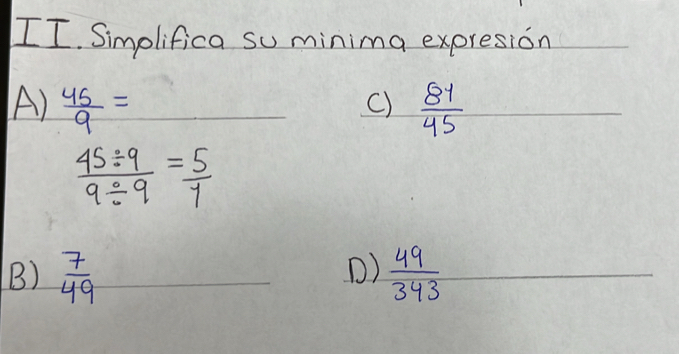 II. Simplifica su minima expresión
A) 45/9 =
45÷9/9÷9 = 5/1
B) 7/49
C) 81/45
D) 49/343